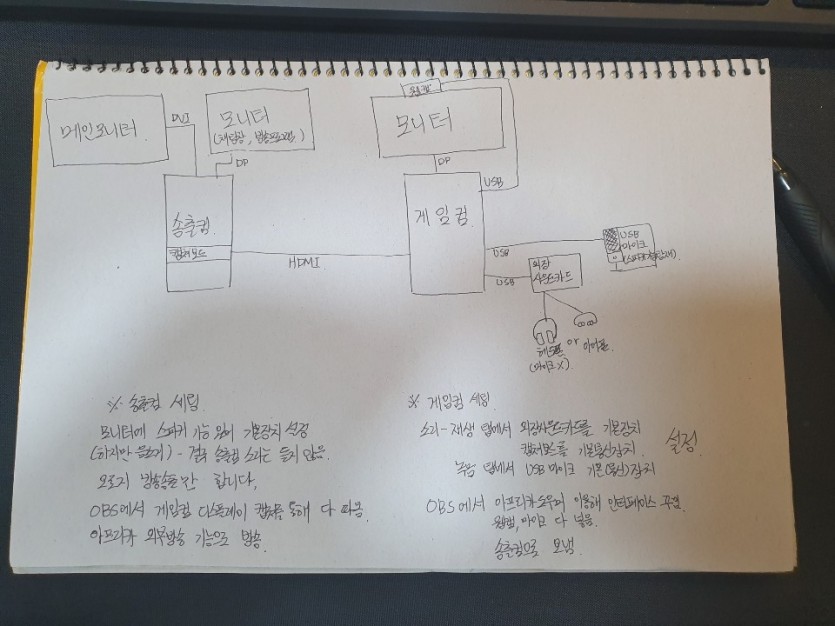 메인모니터
DVI
모니터
(채팅창, 방송프로그램)
DP
웹캠
모니터
DP
USB
송출컴
캡쳐보드
HDMI
게임컴
USB
USB
외장
사운드카드
USB
마이크
헤드폰 or 이어폰
(마이크X)
※ 송출컴 세팅
모니터에 스피커 기능 있어 기본장치 설정
(하지만 음소거) - 결국 송출컴 소리는 듣지 않음.
오로지 방송송출만 합니다.
OBS에서 게임컴 디스플레이 캡쳐를 통해 다 따옴
아프리카 외부방송 기능으로 방송
※ 게임컴 세팅
소리-재생 탭에서 외장사운드카드를 기본장치
캡쳐보드를 기본통신장치
설정
녹음 탭에서 USB마이크 기본(통신)장치
OBS에서 아프리카도우미 이용해 인터페이스 꾸밈
웹캠, 마이크 다 넣음
송출컴으로 보냄